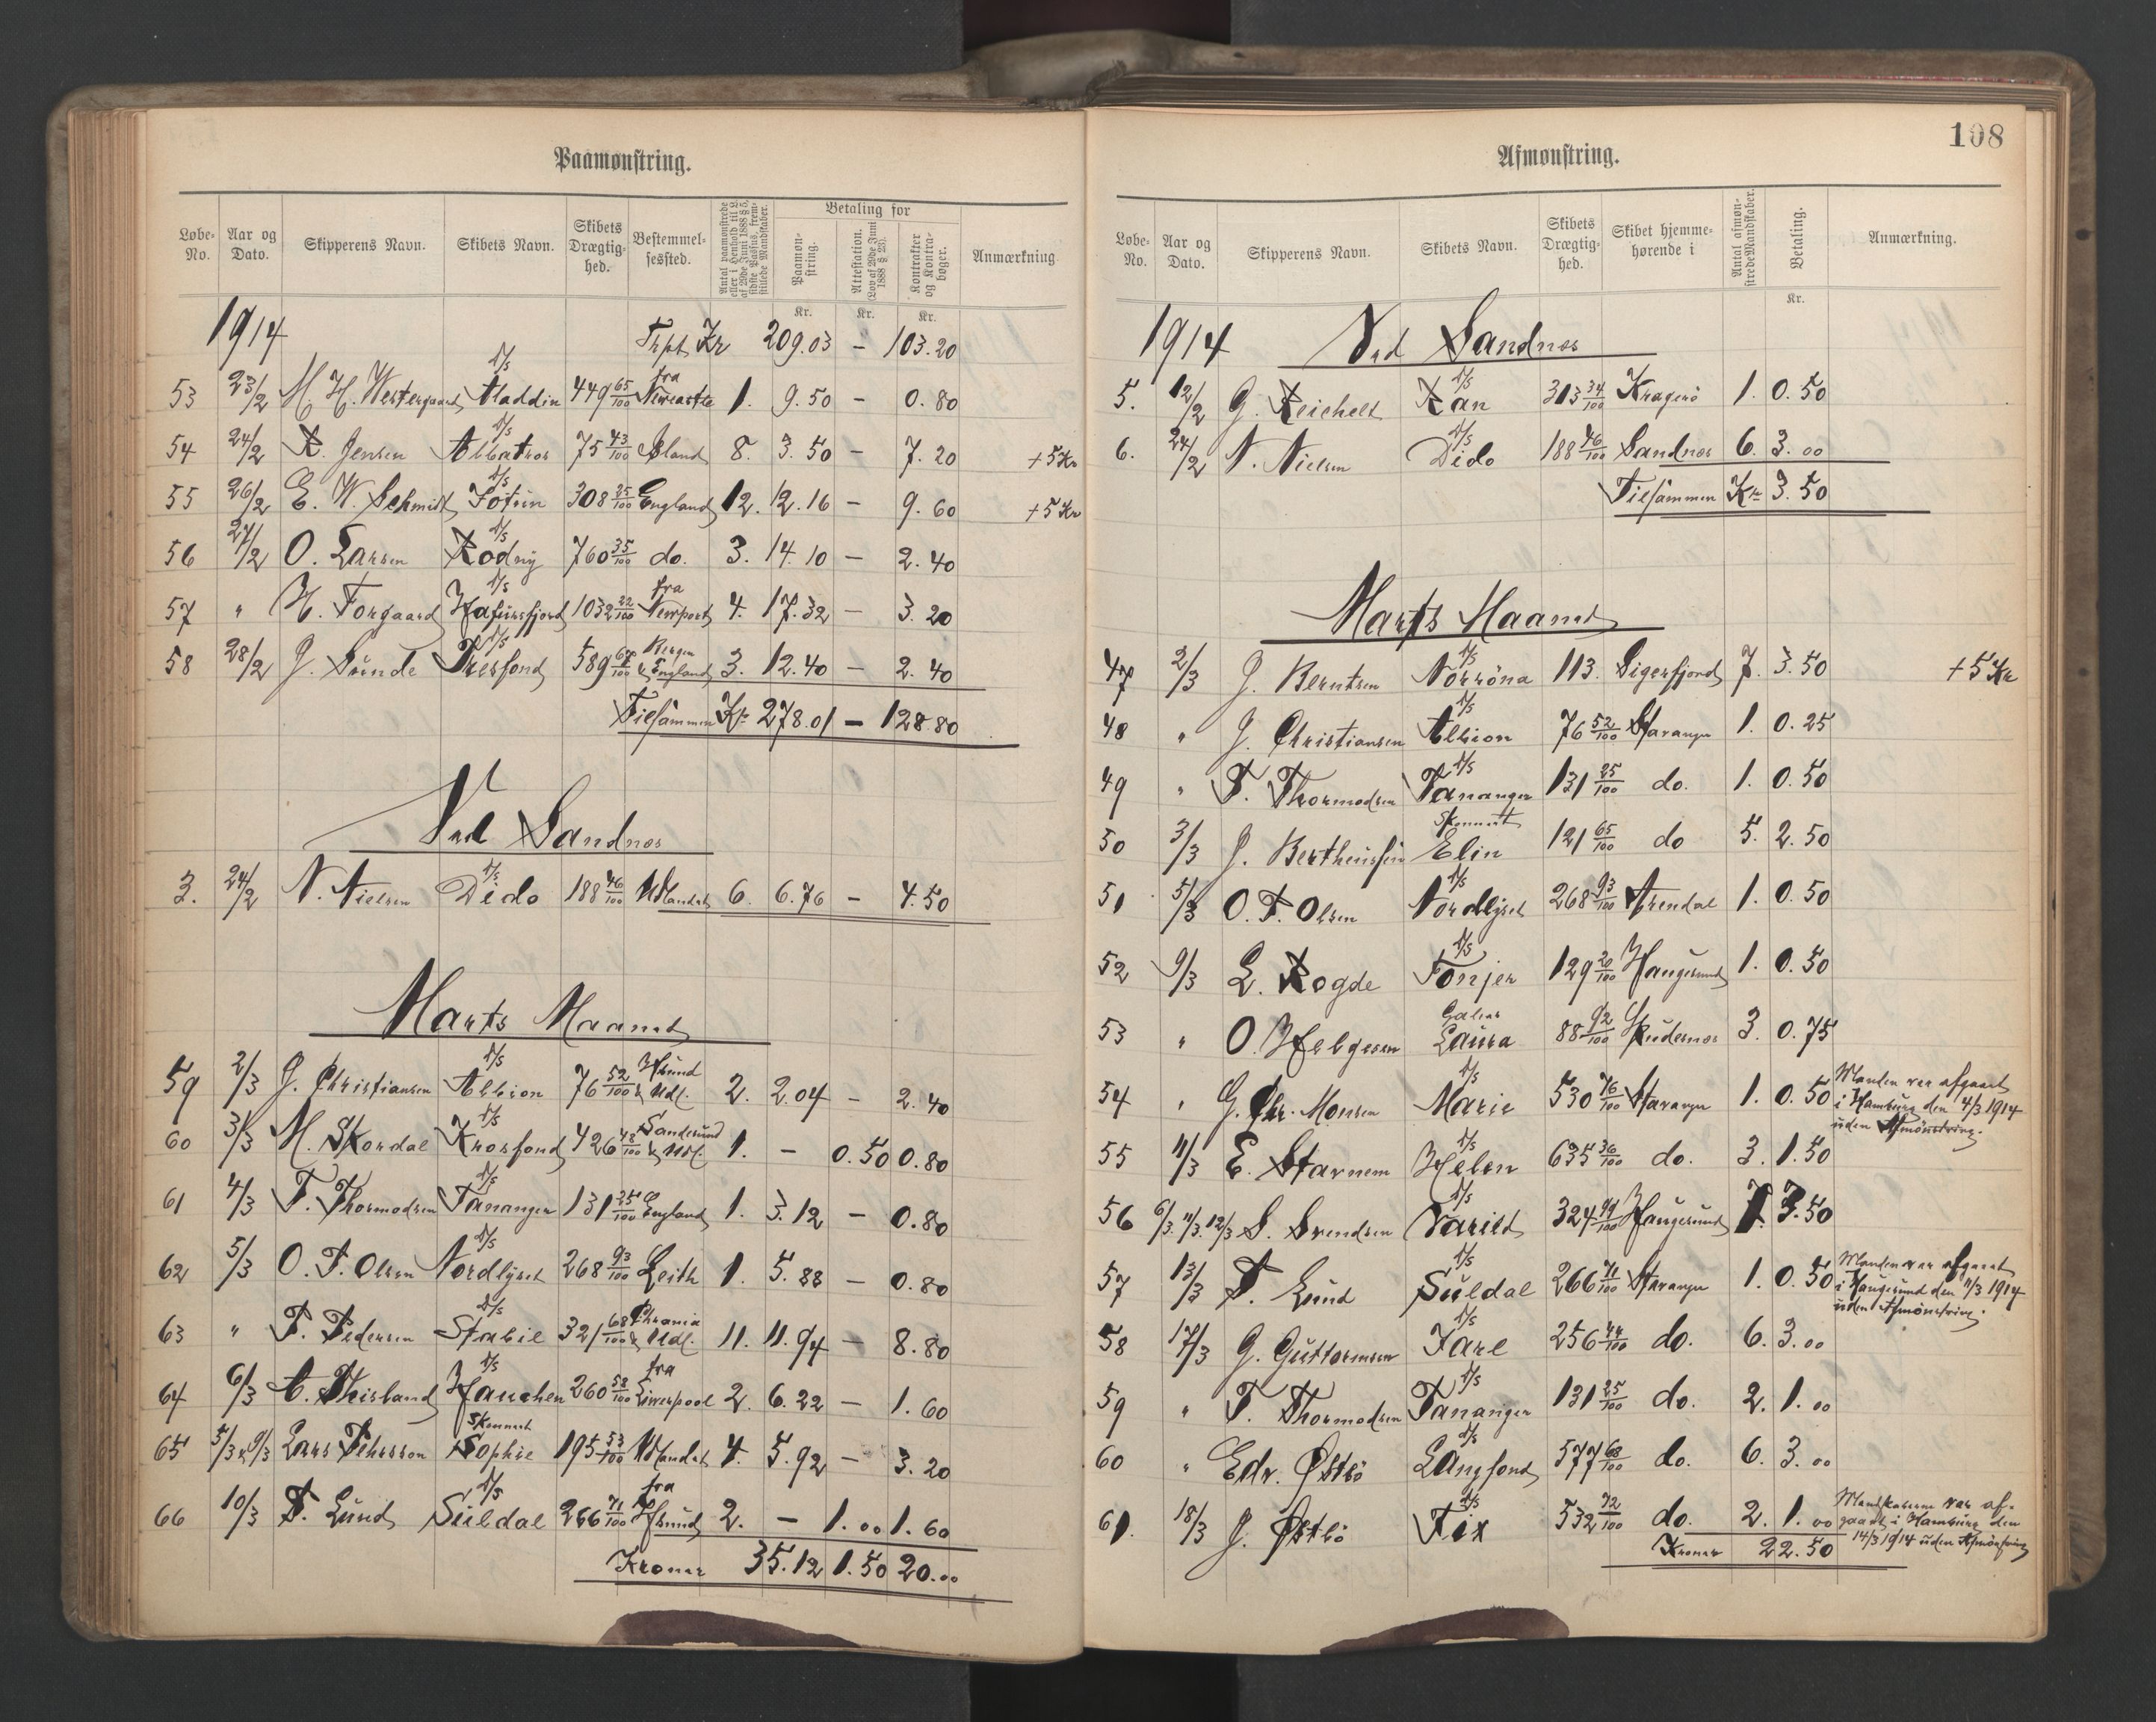 Paamønstring.
Løbe-No. Aar og Dato. Skipperens Navn. Skibets Navn. Skibets Drægtighed. Bestemmelsessted. Antal paamønstrede eller i Henhold til L. af 29de Juni 1888 § 5, sidste Passus, fremstillede Mandskaber. Betaling for Paamønstring. Attestation. (Lov af 29de Juni 1888 § 23). Kontrakter og Kontrabøger. Anmærkning
Kr. Kr. Kr.
1914 Trpt Kr 209.03 – 103.20
53 23/2 M. H. Westergaard D/S Aladdin 449 65/100 fra Newcastle 1. 9.50 – 0.80
54 24/2 R. Jensen D/S Albatros 75 43/100 Island 8. 3.50 – 7.20 + 5 Kr
55 26/2 E. W. Schmidt D/S Jötun 308 25/100 England 12. 12.16 – 9.60 + 5 Kr
56 27/2 O. Larsen D/S Rodny 760 35/100 do. 3. 14.10 – 2.40
57 " H. Torgaard D/S Hafursfjord 1032 22/100 fra Newport 4. 17.32 – 3.20
58 28/2 J. Sunde D/S Tresfond 589 /100 Bergen & England 3. 12.40 – 2.40
Tilsammen Kr 278.01 – 128.80
Ved Sandnes
3. 24/2 N. Nielsen D/S Dido 188 46/100 Udlandet 6. 6.76 – 4.50
Marts Maaned
59 2/3 J. Christiansen D/S Albion 76 52/100 Hsund & Udl. 2. 2.04 – 2.40
60 3/3 M. Skordal D/S Krosfond 426 48/100 Sandesund & Udl. 1. – 0.50 0.80
61 4/3 T. Thormodsen D/S Tananger 131 25/100 England 1. 3.12 – 0.80
62 5/3 O. T. Olsen D/S Nordlyset 268 93/100 Leith 1. 5.88 – 0.80
63 " T. Pedersen D/S Stabil 321 68/100 Chrania & Udl. 11. 11.94 – 8.80
64 6/3 A. Thisland D/S Hauchen 260 58/100 fra Liverpool 2. 6.22 – 1.60
65 5/3 & 9/3 Lars Pehrsson Skonnert Sophie 195 53/100 Udlandet 4. 5.92 – 3.20
66 10/3 T. Lund D/S Suldal 266 71/100 fra Hsund 2. – 1.00 1.60
Kroner 35.12 1.50 20.00
108
Afmønstring.
Løbe-No. Aar og Dato. Skipperens Navn. Skibets Navn. Skibets Drægtighed. Skibet hjemmehørende i Antal afmønstrede Mandskaber. Betaling. Anmærkning.
Kr.
1914 Ved Sandnes
5. 12/2 G. Reichelt D/S Ran 313 34/100 Kragerö 1. 0.50
6. 24/2 N. Nielsen D/S Dido 188 46/100 Sandnes 6. 3.00
Tilsammen Kr 3.50
Marts Maaned
47 2/3 J. Berntsen D/S Norröna 113. Sigerfjord 7. 3.50 + 5 Kr
48 " J. Christiansen D/S Albion 76 52/100 Stavanger 1. 0.25
49 " T. Thormodsen D/S Tananger 131 25/100 do. 1. 0.50
50 3/3 J. Bertheussen Skonnert Elin 121 65/100 do 5. 2.50
51 5/3 O. T. Olsen D/S Nordlyset 268 93/100 Arendal 1. 0.50
52 9/3 L. Rogde D/S Tonjer 129 20/100 Haugesund 1. 0.50
53 " O. Helgesen Galeas Laura 88 92/100 Skudesnes 3. 0.75
54 " G. Chr. Monsen D/S Marie 530 76/100 Stavanger 1. 0.50 Manden var afgaaet i Hamburg den 4/3 1914 uden Afmönstring.
55 11/3 E. Stavnem D/S Helen 635 36/100 do. 3. 1.50
56 6/3. 11/3. 12/3 S. Svendsen D/S Varild 324 99/100 Haugesund 7. 3.50
57 13/3 T. Lund D/S Suldal 266 71/100 Stavanger 1. 0.50 Manden var afgaaet i Haugesund den 11/3 1914 uden Afmönstring.
58 17/3 G. Guttormsen D/S Jarl 256 44/100 do. 6. 3.00
59 " T. Thormodsen D/S Tananger 131 25/100 do. 2. 1.00
60 " Edv. Østbö D/S Langfond 577 68/100 do. 6. 3.00
61. 18/3 J. Østbö D/S Fix 532 72/100 do. 2. 1.00 Mandskaberne var afgaaet i Hamburg den 14/3 1914 uden Afmönstring
Kroner 22.50